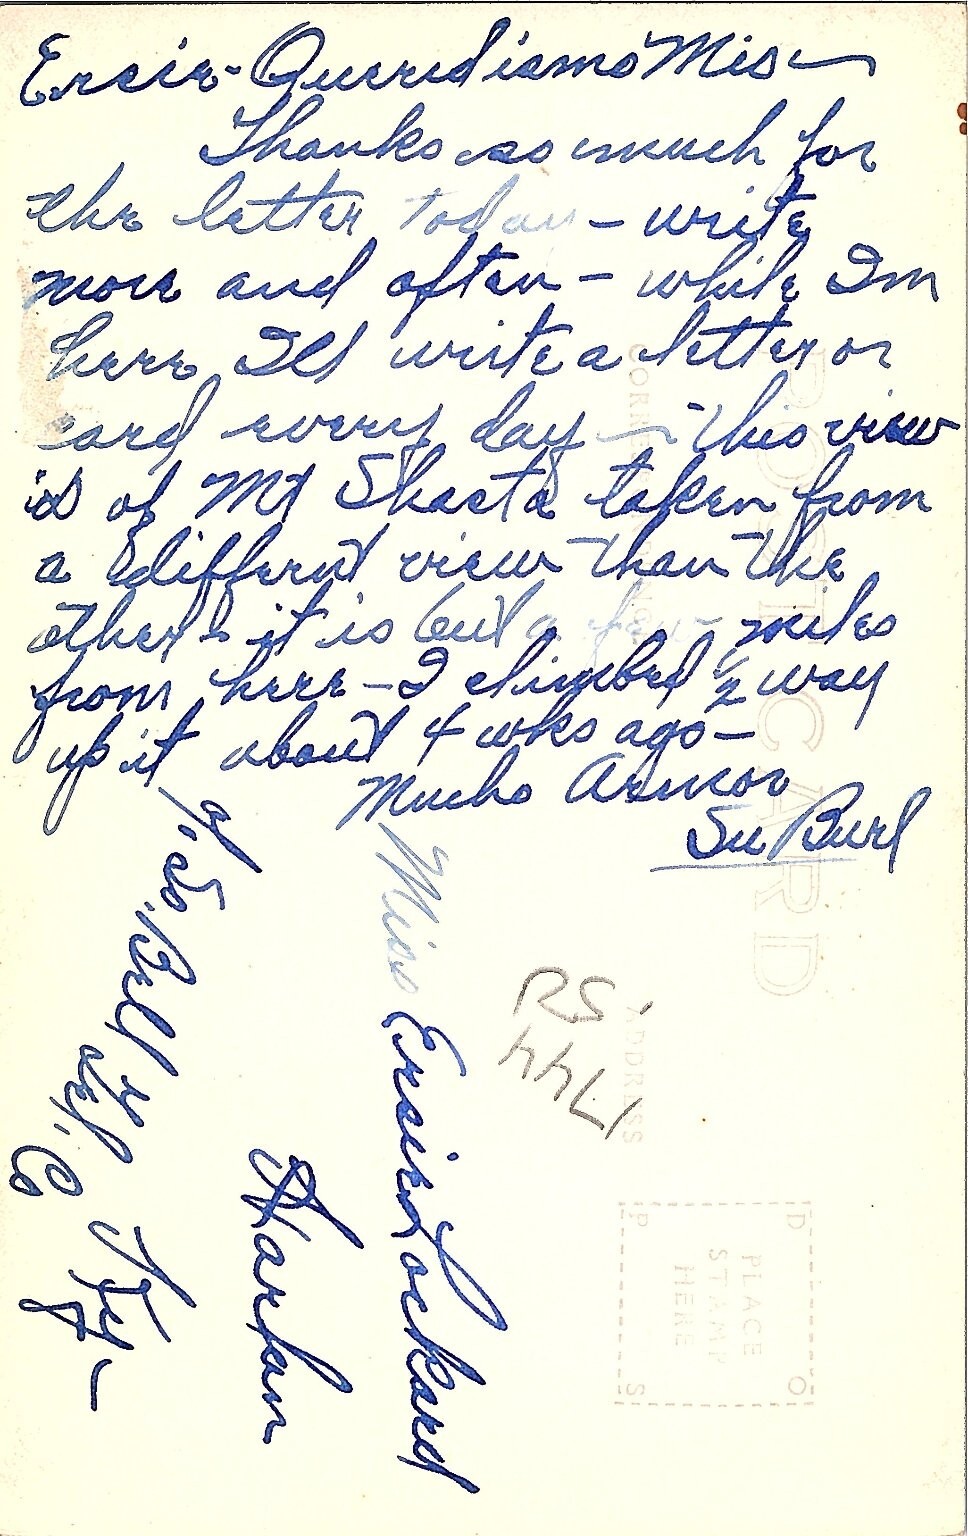 Ersie - Queredisimo Mis —
Thanks so much for
the letter today - write
more and often - while Im
here Ill write a letter or
card every day — this view
is of Mt Shasta taken from
a differnt view than the
other - it is but a few miles
from here - I climbed 1/2 way
up it about 4 wks ago -
Mucho Armor
Su Burl
Miss Ersie Lockard
Harlan
Bell
Co Ky -
RS
1744
POST CARD
CORRESPONDENCE
ADDRESS
PLACE
STAMP
HERE
D O
P S